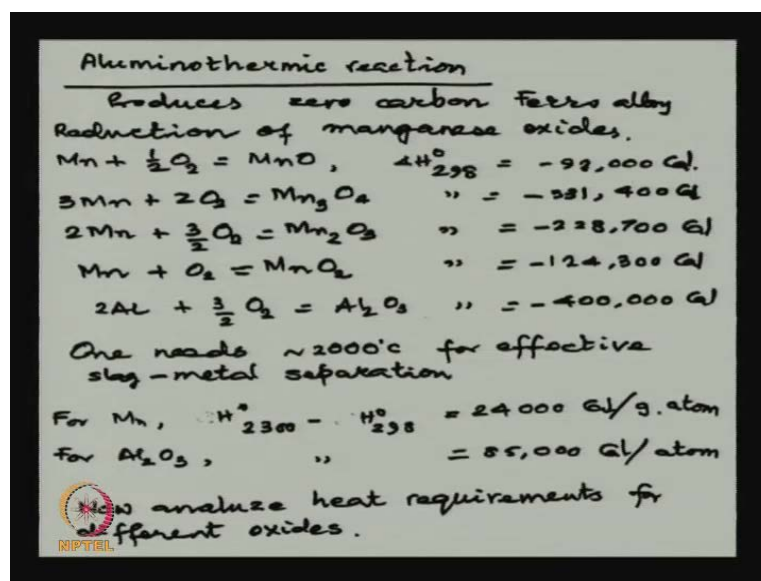 Aluminothermic reaction
Produces zero carbon Ferro alloy
Reduction of manganese oxides.
Mn + 1/2 O2 = MnO, ΔH°298 = -92,000 Cal.
3Mn + 2O2 = Mn3O4 " = -331,400 Cal
2Mn + 3/2 O2 = Mn2O3 " = -228,700 Cal
Mn + O2 = MnO2 " = -124,300 Cal
2AL + 3/2 O2 = Al2O3 " = -400,000 Cal
One needs ~2000°C for effective
slag-metal separation
For Mn, H°2300 - H°298 = 24000 Cal/g.atom
For Al2O3, " = 85,000 Cal/atom
Now analuze heat requirements for
different oxides.
NPTEL